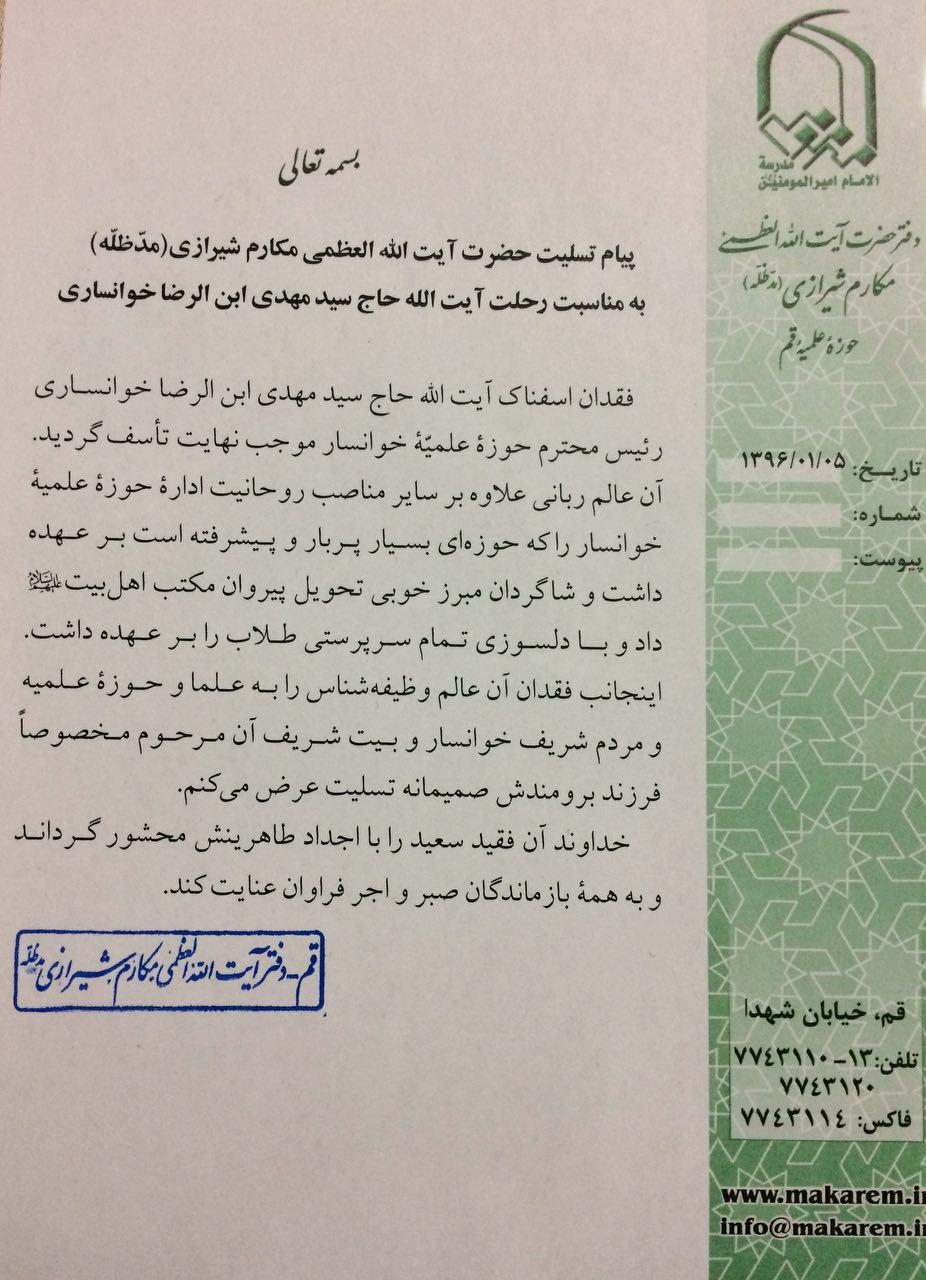 مدرسة
الامام امیرالمومنین
دفتر حضرت آیت الله العظمی
مکارم شیرازی (مدّظلّه)
حوزهٔ علمیهٔ قم
تاریـخ: ۱۳۹۶/۰۱/۰۵
شماره:
پیوست:
بسمه تعالی
پیام تسلیت حضرت آیت الله العظمی مکارم شیرازی(مدّظلّه)
به مناسبت رحلت آیت الله حاج سید مهدی ابن الرضا خوانساری
فقدان اسفناک آیت الله حاج سید مهدی ابن الرضا خوانسـاری
رئیس محترم حوزهٔ علمیّهٔ خوانسار موجب نهایت تأسف گردید.
آن عالم ربانی علاوه بر سایر مناصب روحانیت ادارهٔ حوزهٔ علمیهٔ
خوانسار را که حوزه‌ای بسیار پـربار و پـیشرفته است بر عـهده
داشت و شاگردان مبرز خوبی تحویل پیروان مکتب اهل‌بیت علیهم‌السلام
داد و بـا دلسوزی تـمام سـرپرستی طـلاب را بـر عـهده داشت.
اینجانب فقدان آن عالم وظیفه‌شناس را به عـلما و حـوزهٔ عـلمیه
و مردم شریف خوانسار و بیت شریف آن مـرحوم مـخصوصاً
فرزند برومندش صمیمانه تسلیت عرض می‌کنم.
خداوند آن فقید سعید را با اجداد طاهرینش محشور گـردانـد
و به همهٔ بازماندگان صبر و اجر فراوان عنایت کند.
قم-دفتر آیت الله العظمی مکارم شیرازی مدظلّه
قم، خیابان شهدا
تلفن: ۱۳-۷۷٤۳۱۱۰
۷۷٤۳۱۲۰
فاکس: ۷۷٤۳۱۱٤
www.makarem.ir
info@makarem.ir